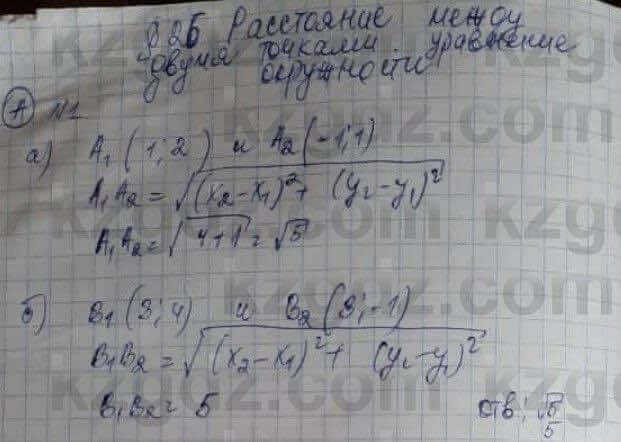 § 26 Расстояние между
двумя точками уравнение
окружности
А №1
а) A₁(1; 2) и A₂(-1; 1)
A₁A₂ = √(x₂-x₁)² + (y₂-y₁)²
A₁A₂ = √4+1 = √5
б) B₁(3; 4) и B₂(3; -1)
B₁B₂ = √(x₂-x₁)² + (y₂-y₁)²
B₁B₂ = 5 отв: √5
5
kzgdz.com